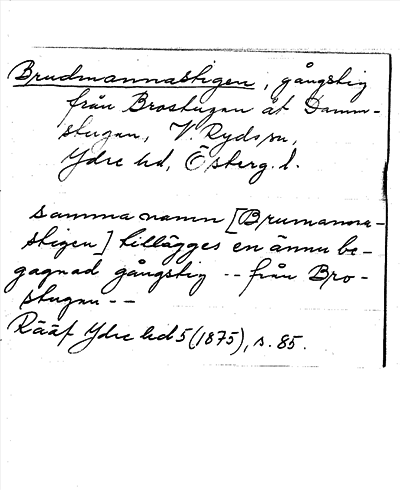 Brudmannastigen, gångstig
från Brostugan åt Damm-
stugan, V. Ryd sn,
Ydre hd, Österg. l.
samma namn [Brumanna-
stigen] tillägges en ännu be-
gagnad gångstig -- från Bro-
stugan --
Rääf Ydre hd 5 (1875), s. 85.